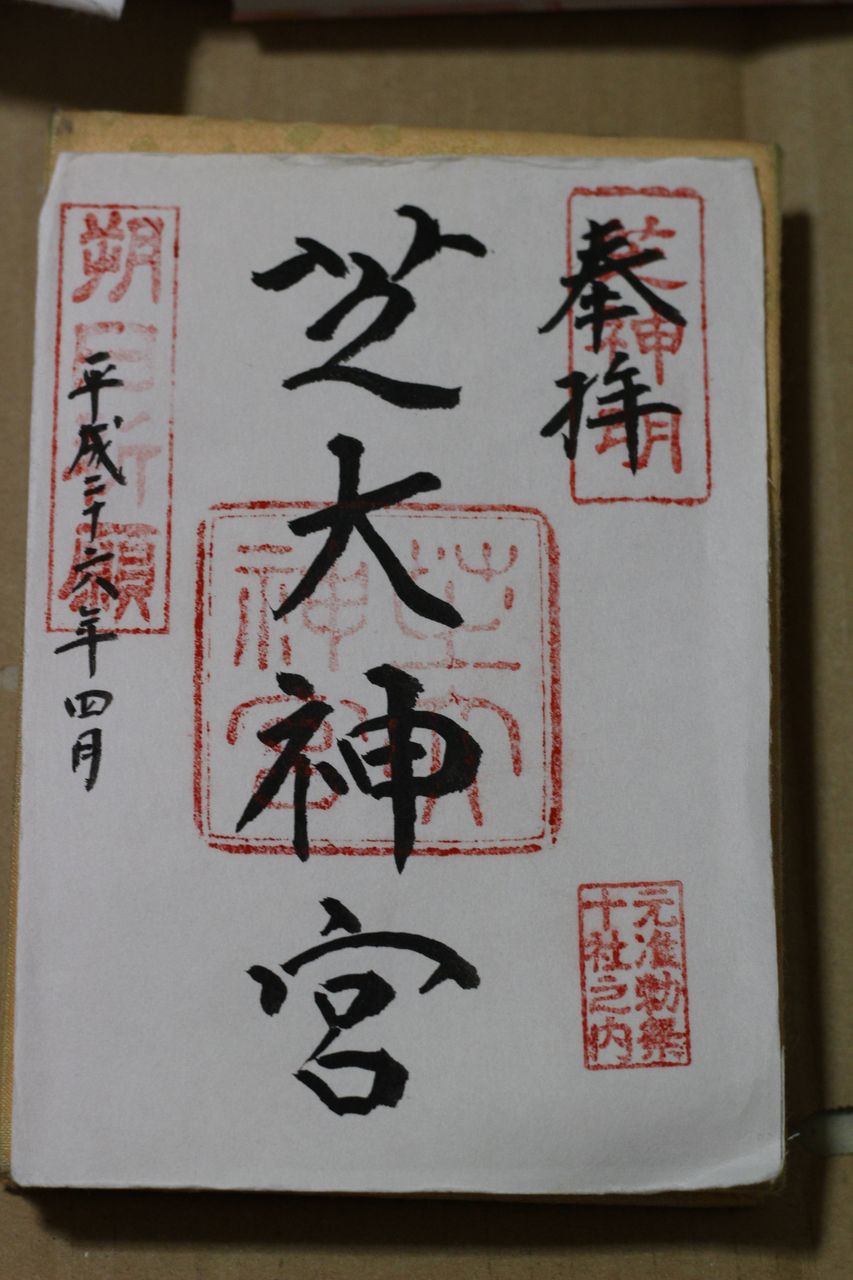 奉拝
芝神明
元准勅祭
十社之内
芝大神宮
芝大
神宮
朔日祈願
平成二十六年四月